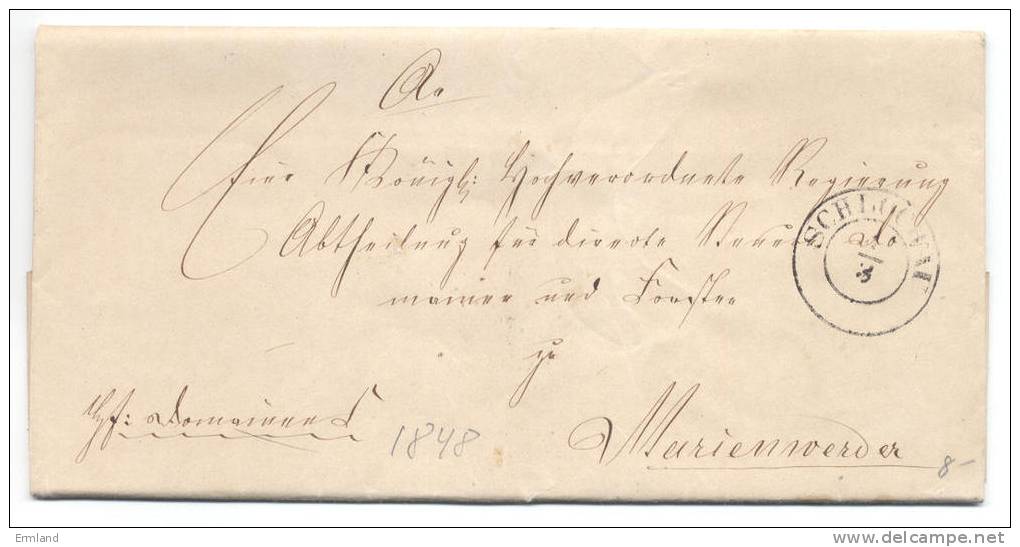 An
Eine Königl: Hochverordnete Regierung
Abtheilung für directe Steuern Do
mainen und Forsten
zu
Marienwerder
Domainen
1848
8-
SCHLOCHAU
Ermland
www.delcampe.net